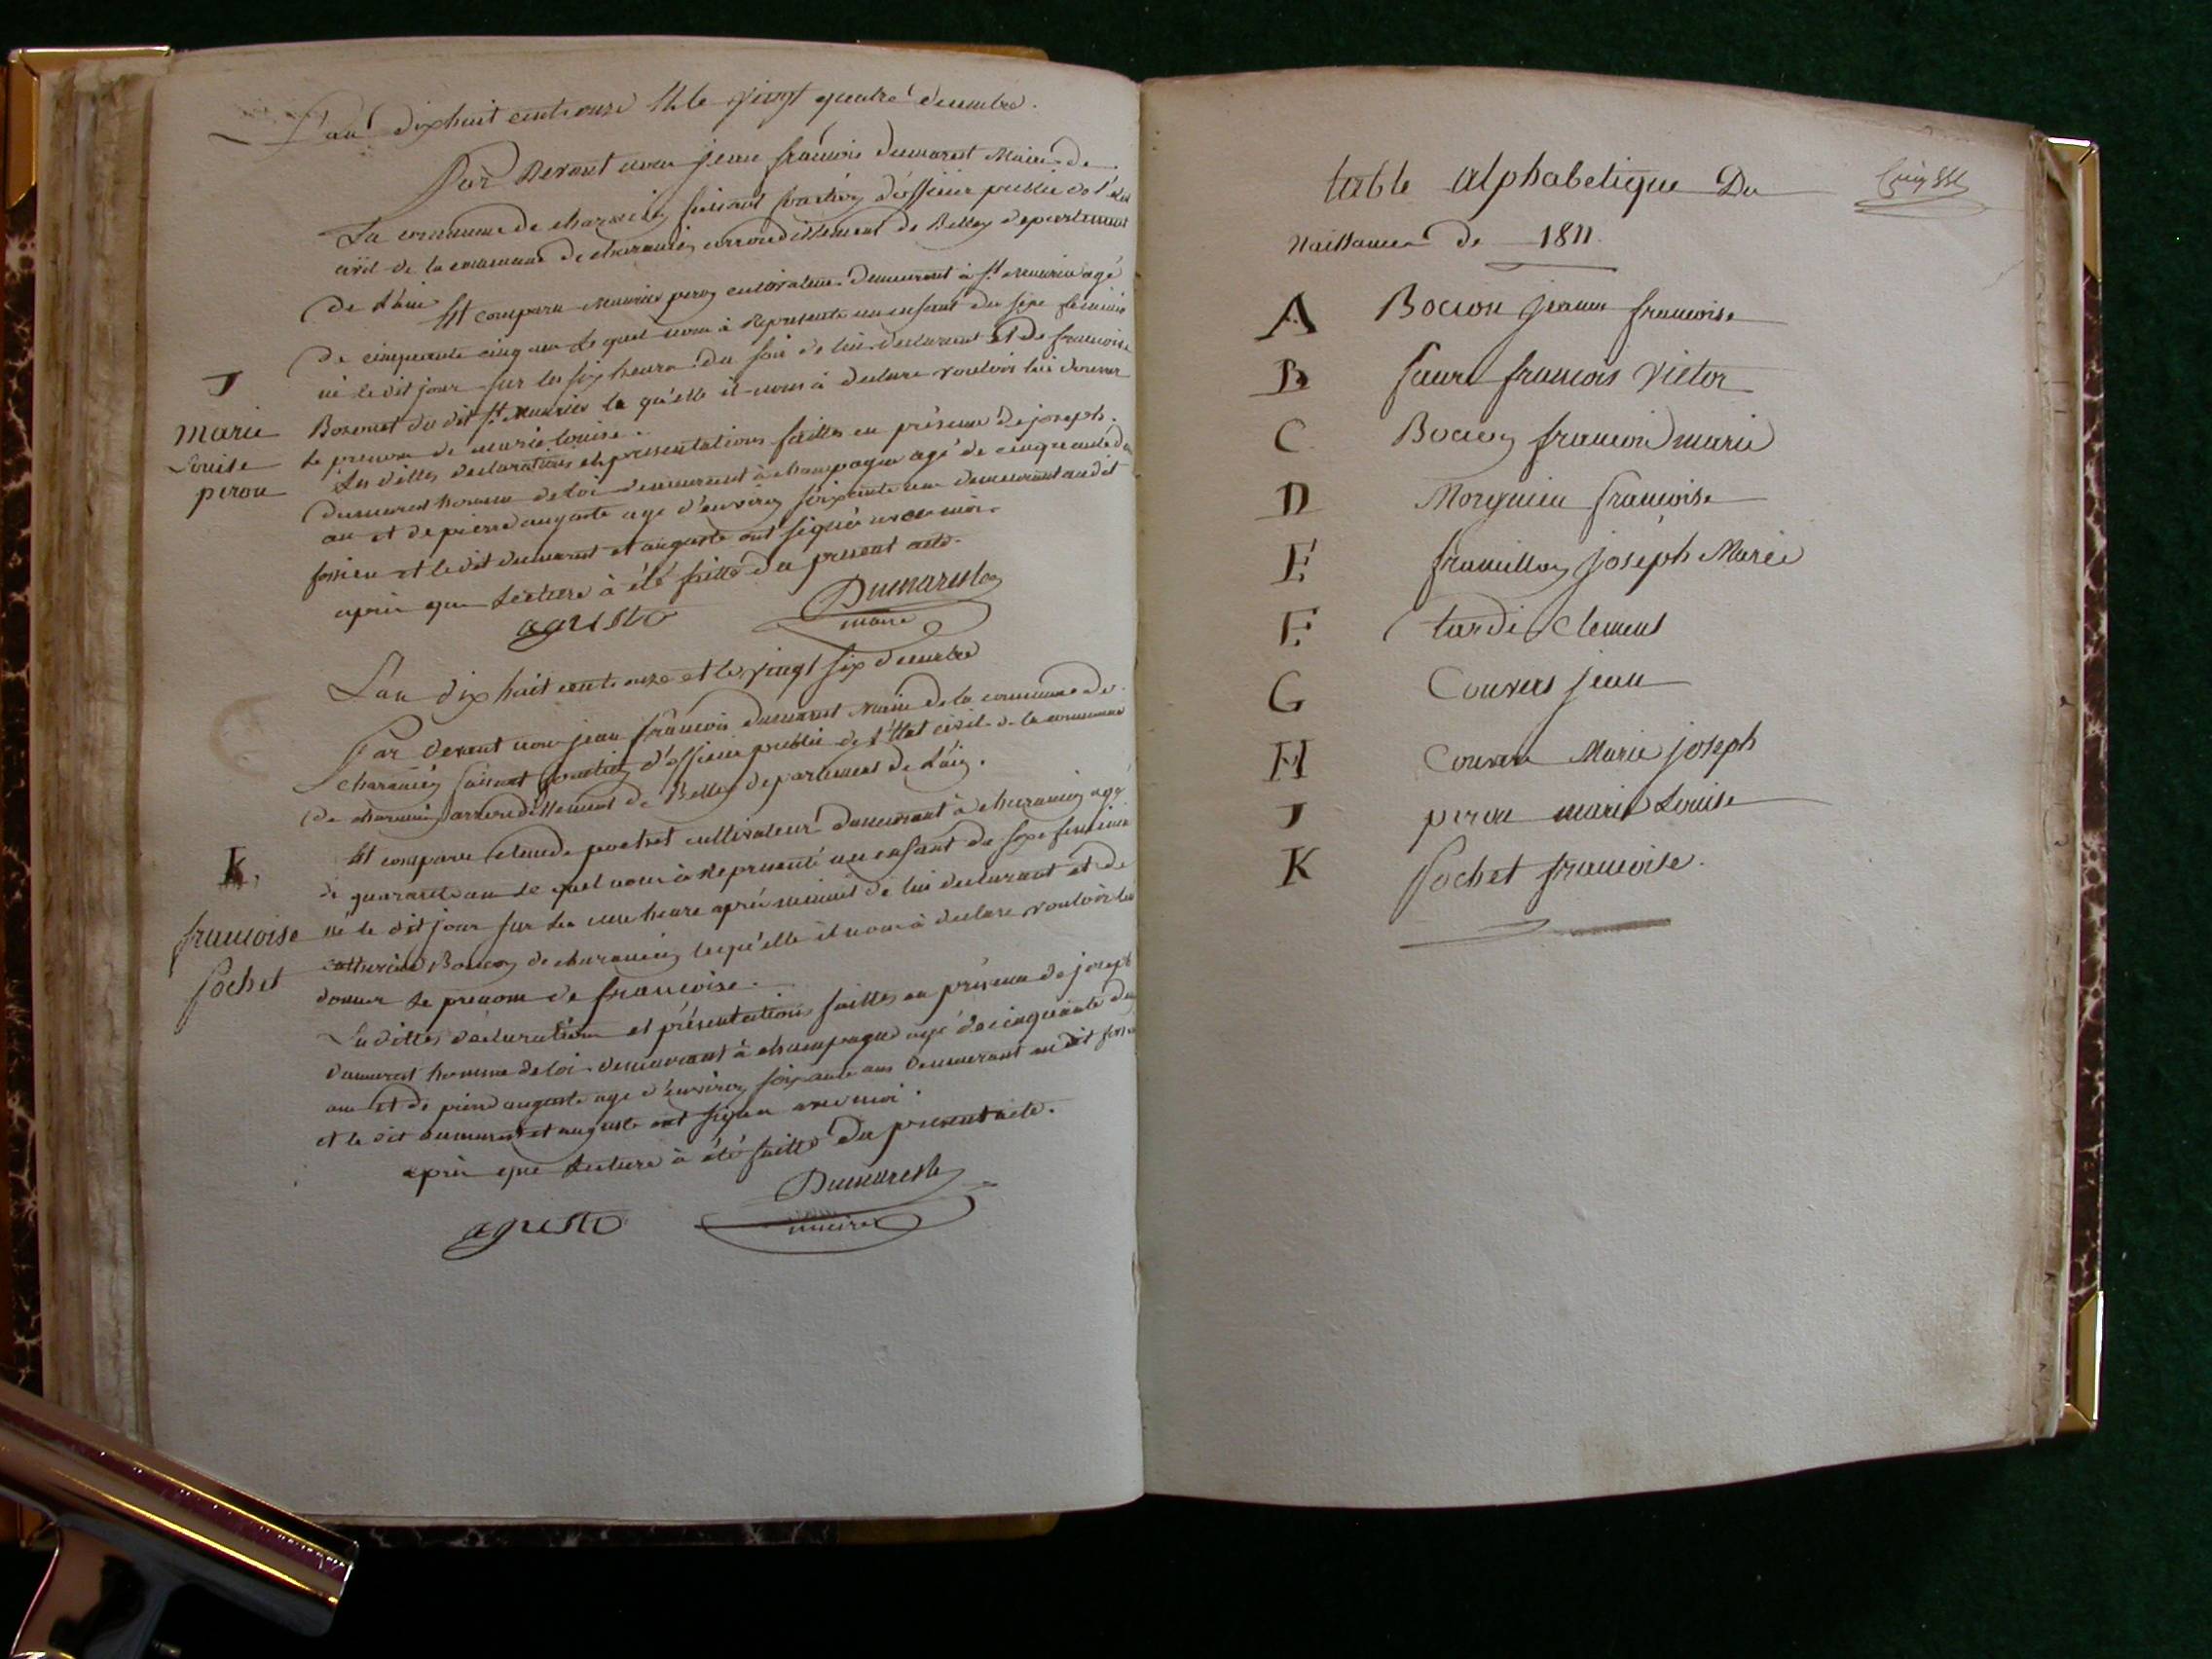 L'an dix huit cent onze et le vingt quatre decembre.
Par Devant nous jean francois dumarest Maire de
La commune de charancin faisant fonction d'officier public de l'etat
civil de la commune de charancin arrondissement de Belley departement
de L'ain Est comparu Maurice peron cultivateur demeurant à St maurice agé
de cinquante cinq ans Le quel nous à Representé un enfant du sexe feminin
né le dit jour sur les six heures du soir de lui declarant Et de francoise
du dit St maurice la qu'elle il nous à declare vouloir lui donner
J
marie
Louise
peron
Le prenom de marie Louise.
Les dittes declarations et presentations faittes en présence de joseph
dumarest homme de loi demeurant à champagne agé de cinquante deux
ans et de pierre auguste age d'environ soixante ans demeurant au dit
fossieu et le dit dumarest et auguste ont signés avec moi.
après que Lecture à été faitte du present acte.
agusto
Dumarest
maire
L'an dix huit cent onze et le vingt six decembre
Par devant nous jean francois dumarest Maire de la commune de
charancin faisant fonction d'officier public de l'Etat civil de la commune
de charancin arrondissement de Belley departement de L'ain.
Est comparu claude pochet cultivateur demeurant à charancin agé
de quarante ans Le quel nous à Representé un enfant du sexe feminin
K.
francoise
pochet
né le dit jour sur les une heure après minuit de lui declarant et de
catherine de charancin laqu'elle il nous à declare vouloir lui
donner Le prenom de francoise.
Les dittes déclaration et présentations faittes en présence de joseph
dumarest homme de loi demeurant à champagne agé de cinquante deux
ans Et de pierre auguste age d'environ soixante ans demeurant au dit
et le dit dumarest et auguste ont signer avec moi.
après que Lecture à été faitte du present acte.
agusto
Dumarest
maire
table alphabetique Du
Naissances de 1811.
A Bocion jeanne francoise
B faure francois Victor
C Bocion francois marie
D Morgnieu francoise
E framillon joséph Marie
F tardi Clement
G Convers jean
H Convers Marie joseph
J peron marie Louise
K Pochet francoise.